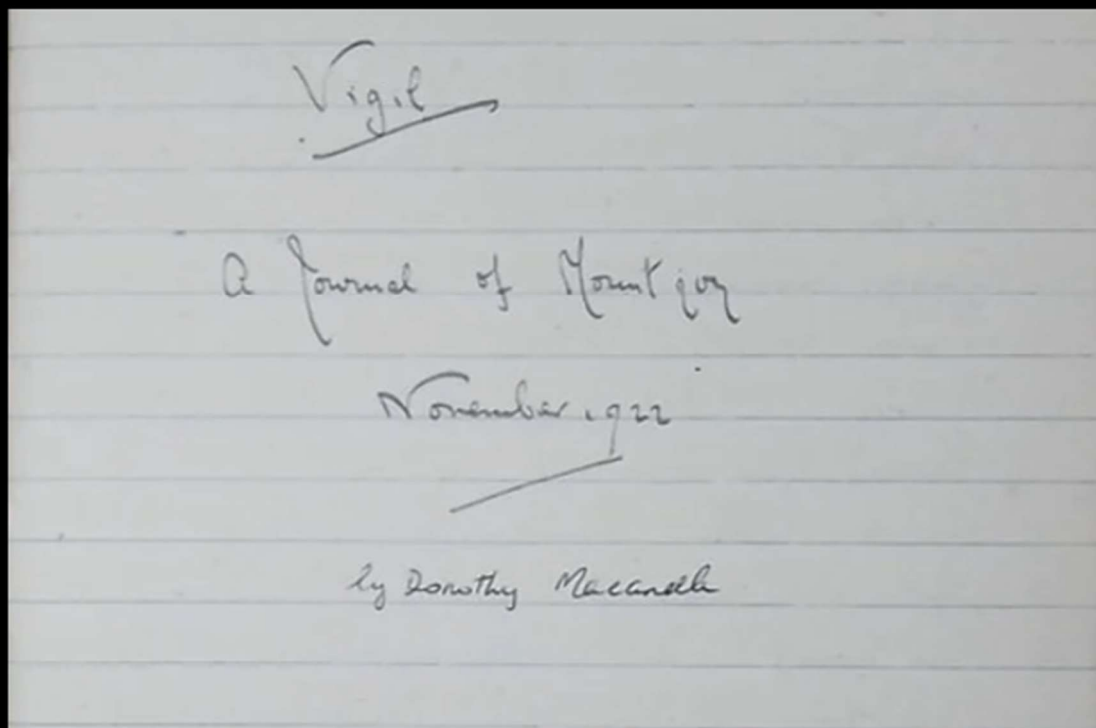 Vigil
A Journal of Mountjoy
November 1922
by Dorothy Macardle